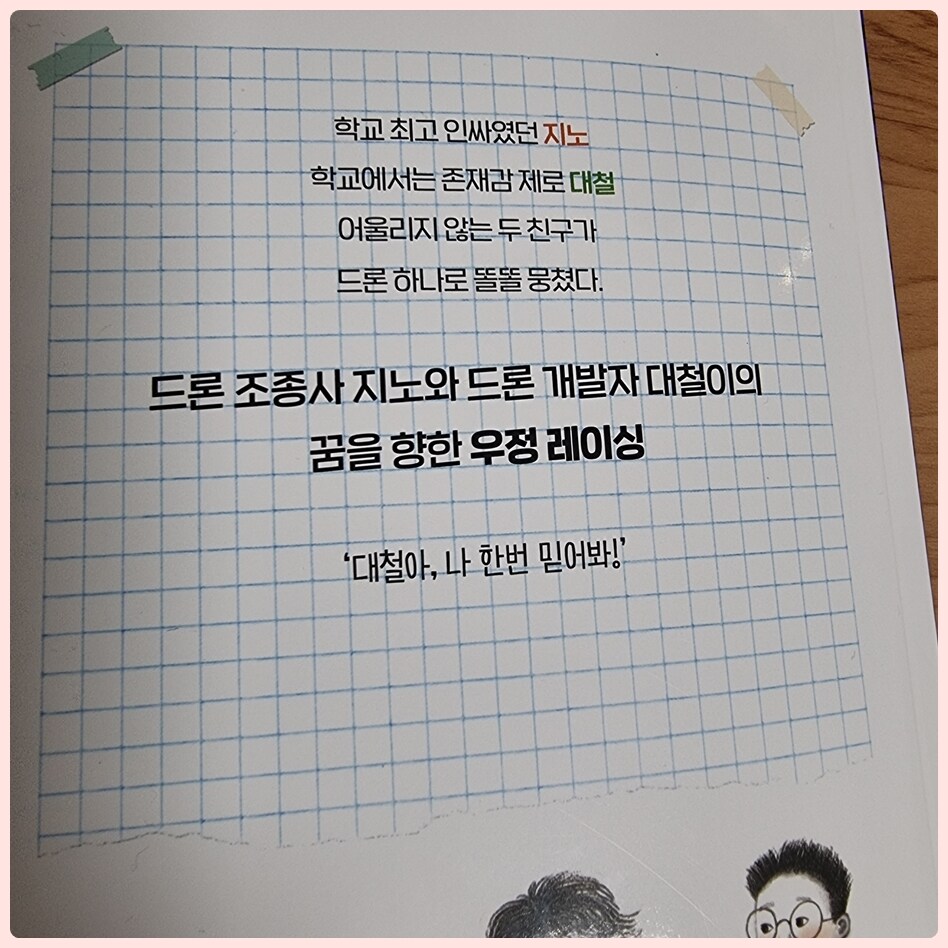 학교 최고 인싸였던 지노
학교에서는 존재감 제로 대철
어울리지 않는 두 친구가
드론 하나로 똘똘 뭉쳤다.
드론 조종사 지노와 드론 개발자 대철이의
꿈을 향한 우정 레이싱
‘대철아, 나 한번 믿어봐!’